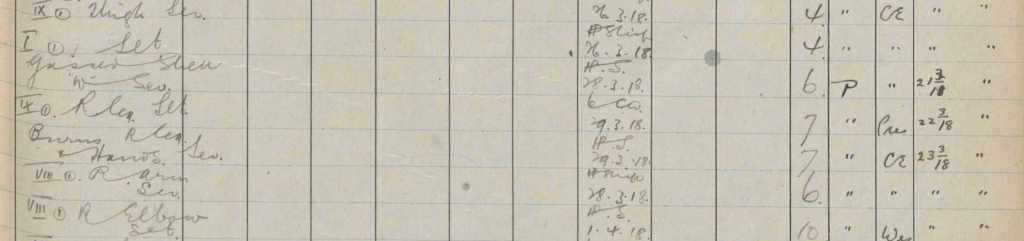 IX ① Thigh Sev. 26.3.18. 4. " CE " "
H Ship
I ①. Set 26.3.18. 4 " " " "
Gassed Shell H.S.
"W" Sev. 28.3.18. 6. P " 21 3/18 "
6 Co.
IX ①. R Leg Set 29.3.18. 7 " Pres 22 3/18 "
Burns R Leg H.S.
& Hands. Sev. 29.3.18. 7 " CE 23 3/18 "
VIII ①. R arm H Ship
Sev. 28.3.18. 6. " " " "
VIII ① R Elbow H.S.
Set. 1.4.18. 10 " Wes " "